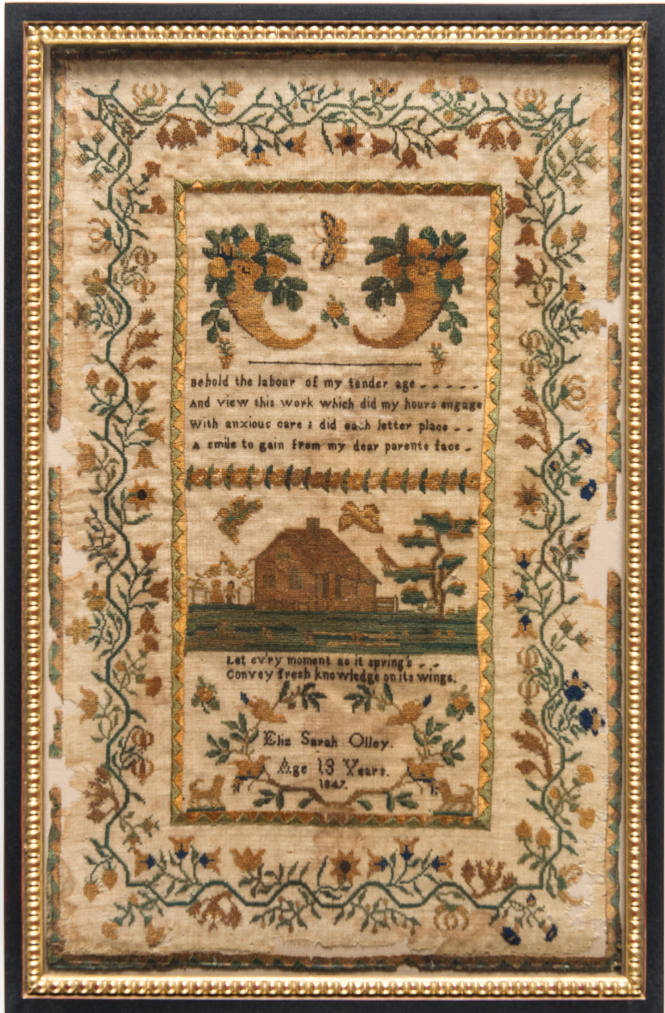 Behold the labour of my tender age - - - - -
And view this work which did my hours engage
With anxious care i did each letter place - -
A smile to gain from my dear parents face -
Let ev'ry moment as it spring's - -
Convey fresh knowledge on its wings.
Eliz Sarah Olley.
Age 13 Years.
1847.